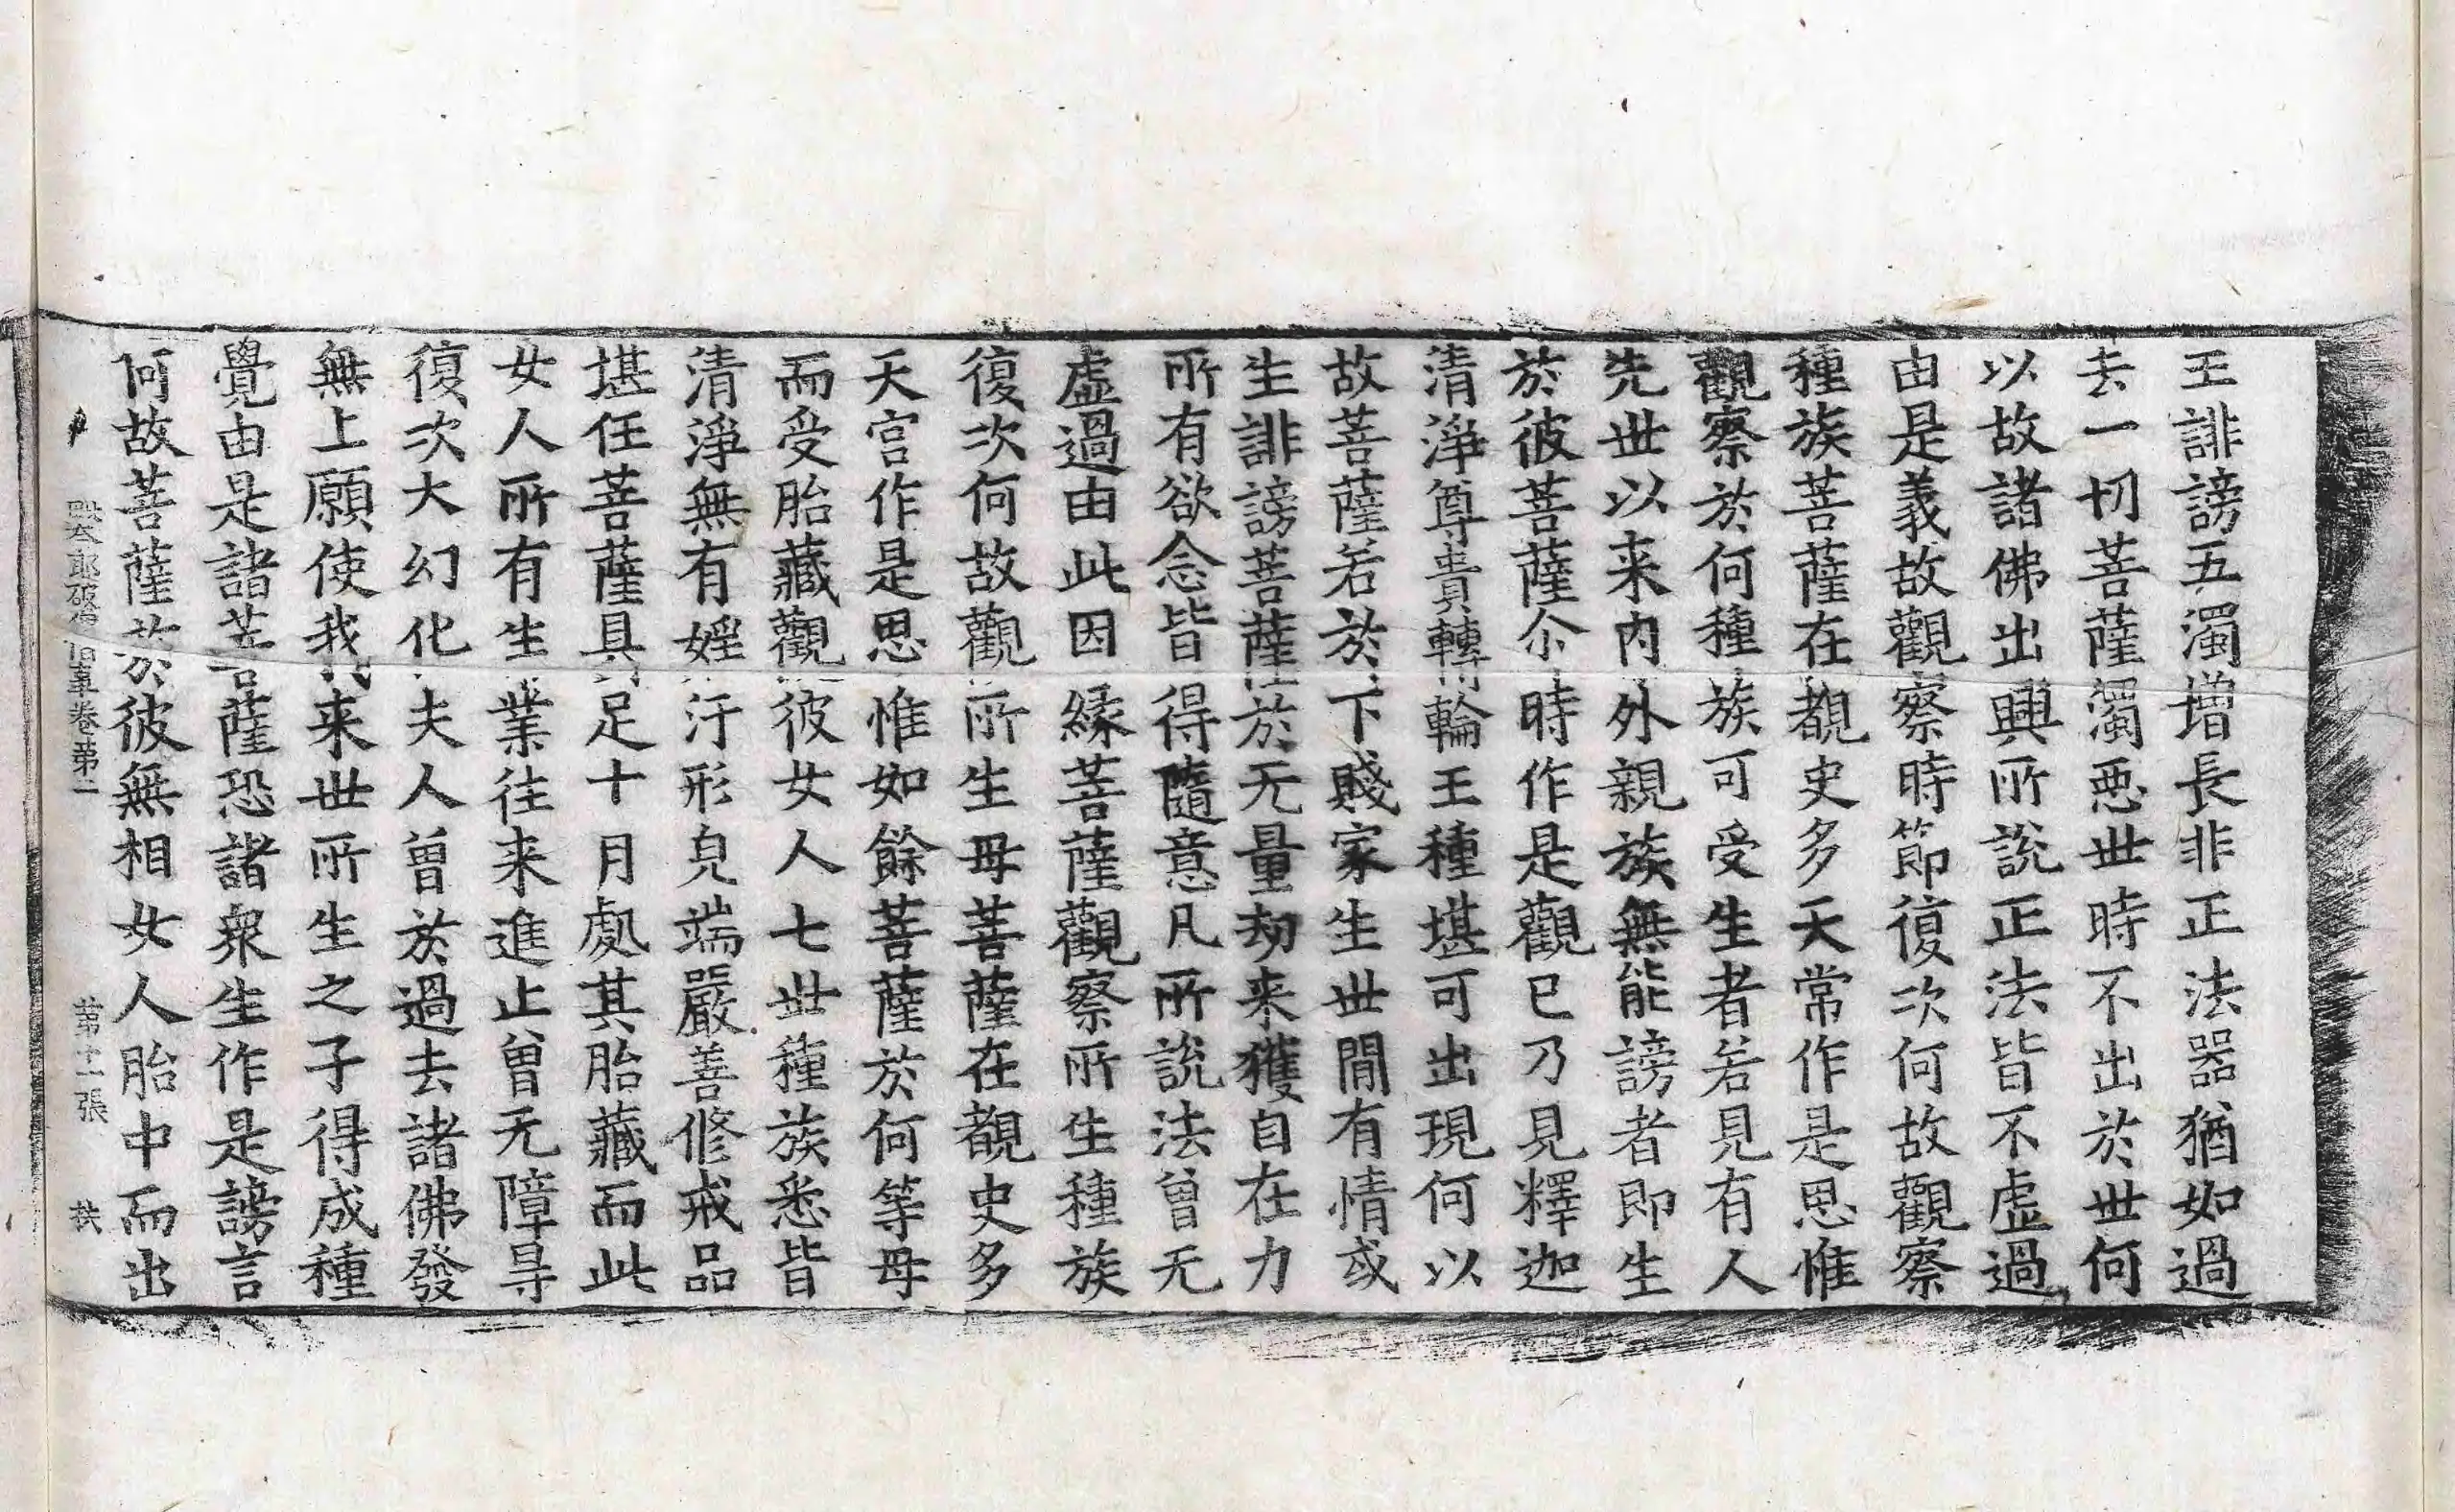 王誹謗五濁增長非正法器猶如過
去一切菩薩濁惡世時不出於世何
以故諸佛出興所說正法皆不虛過
由是義故觀察時節復次何故觀察
種族菩薩在覩史多天常作是思惟
觀察於何種族可受生者若見有人
先世以来內外親族無能謗者即生
於彼菩薩尒時作是觀已乃見釋迦
清淨尊貴轉輪王種堪可出現何以
故菩薩若於下賤家生世間有情或
生誹謗菩薩於无量劫来獲自在力
所有欲念皆得隨意凡所說法曾无
虛過由此因緣菩薩觀察所生種族
復次何故觀所生母菩薩在覩史多
天宮作是思惟如餘菩薩於何等母
而受胎藏觀彼女人七世種族悉皆
清淨無有婬汙形皃端嚴善修戒品
堪任菩薩具足十月處其胎藏而此
女人所有生業往来進止曾无障㝵
復次大幻化夫人曾於過去諸佛發
無上願使我来世所生之子得成種
覺由是諸菩薩恐諸衆生作是謗言
何故菩薩於彼無相女人胎中而出
卷第二 第十二張